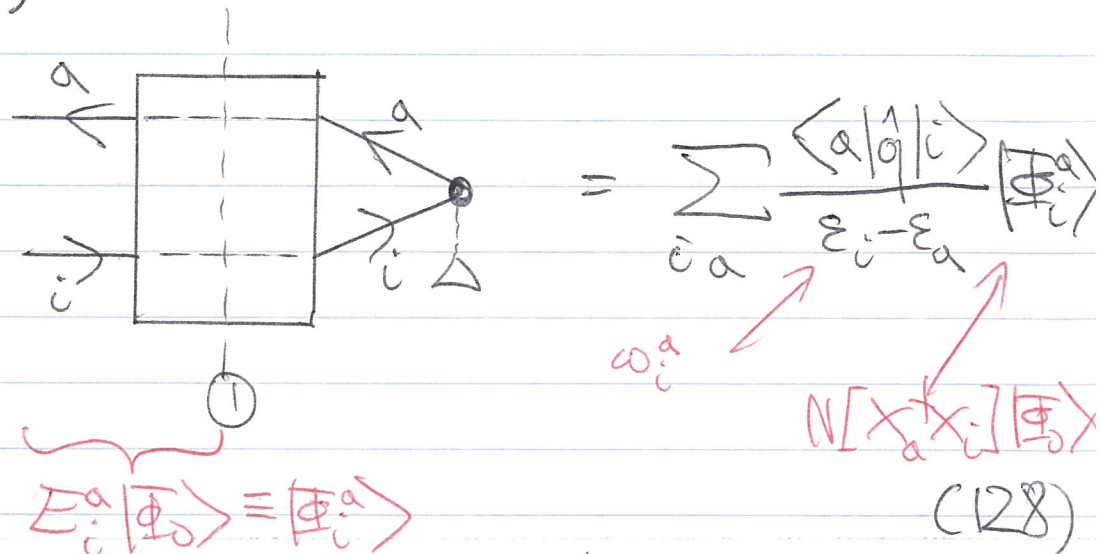 )
a
a
i
i
①
= Σ_{i a} ⟨a|ô|i⟩ / (ε_i − ε_a) |Φ_i^a⟩
ω_i^a
N[X_a^† X_i]|Φ_0⟩
E_i^a|Φ_0⟩ ≡ |Φ_i^a⟩
(128)